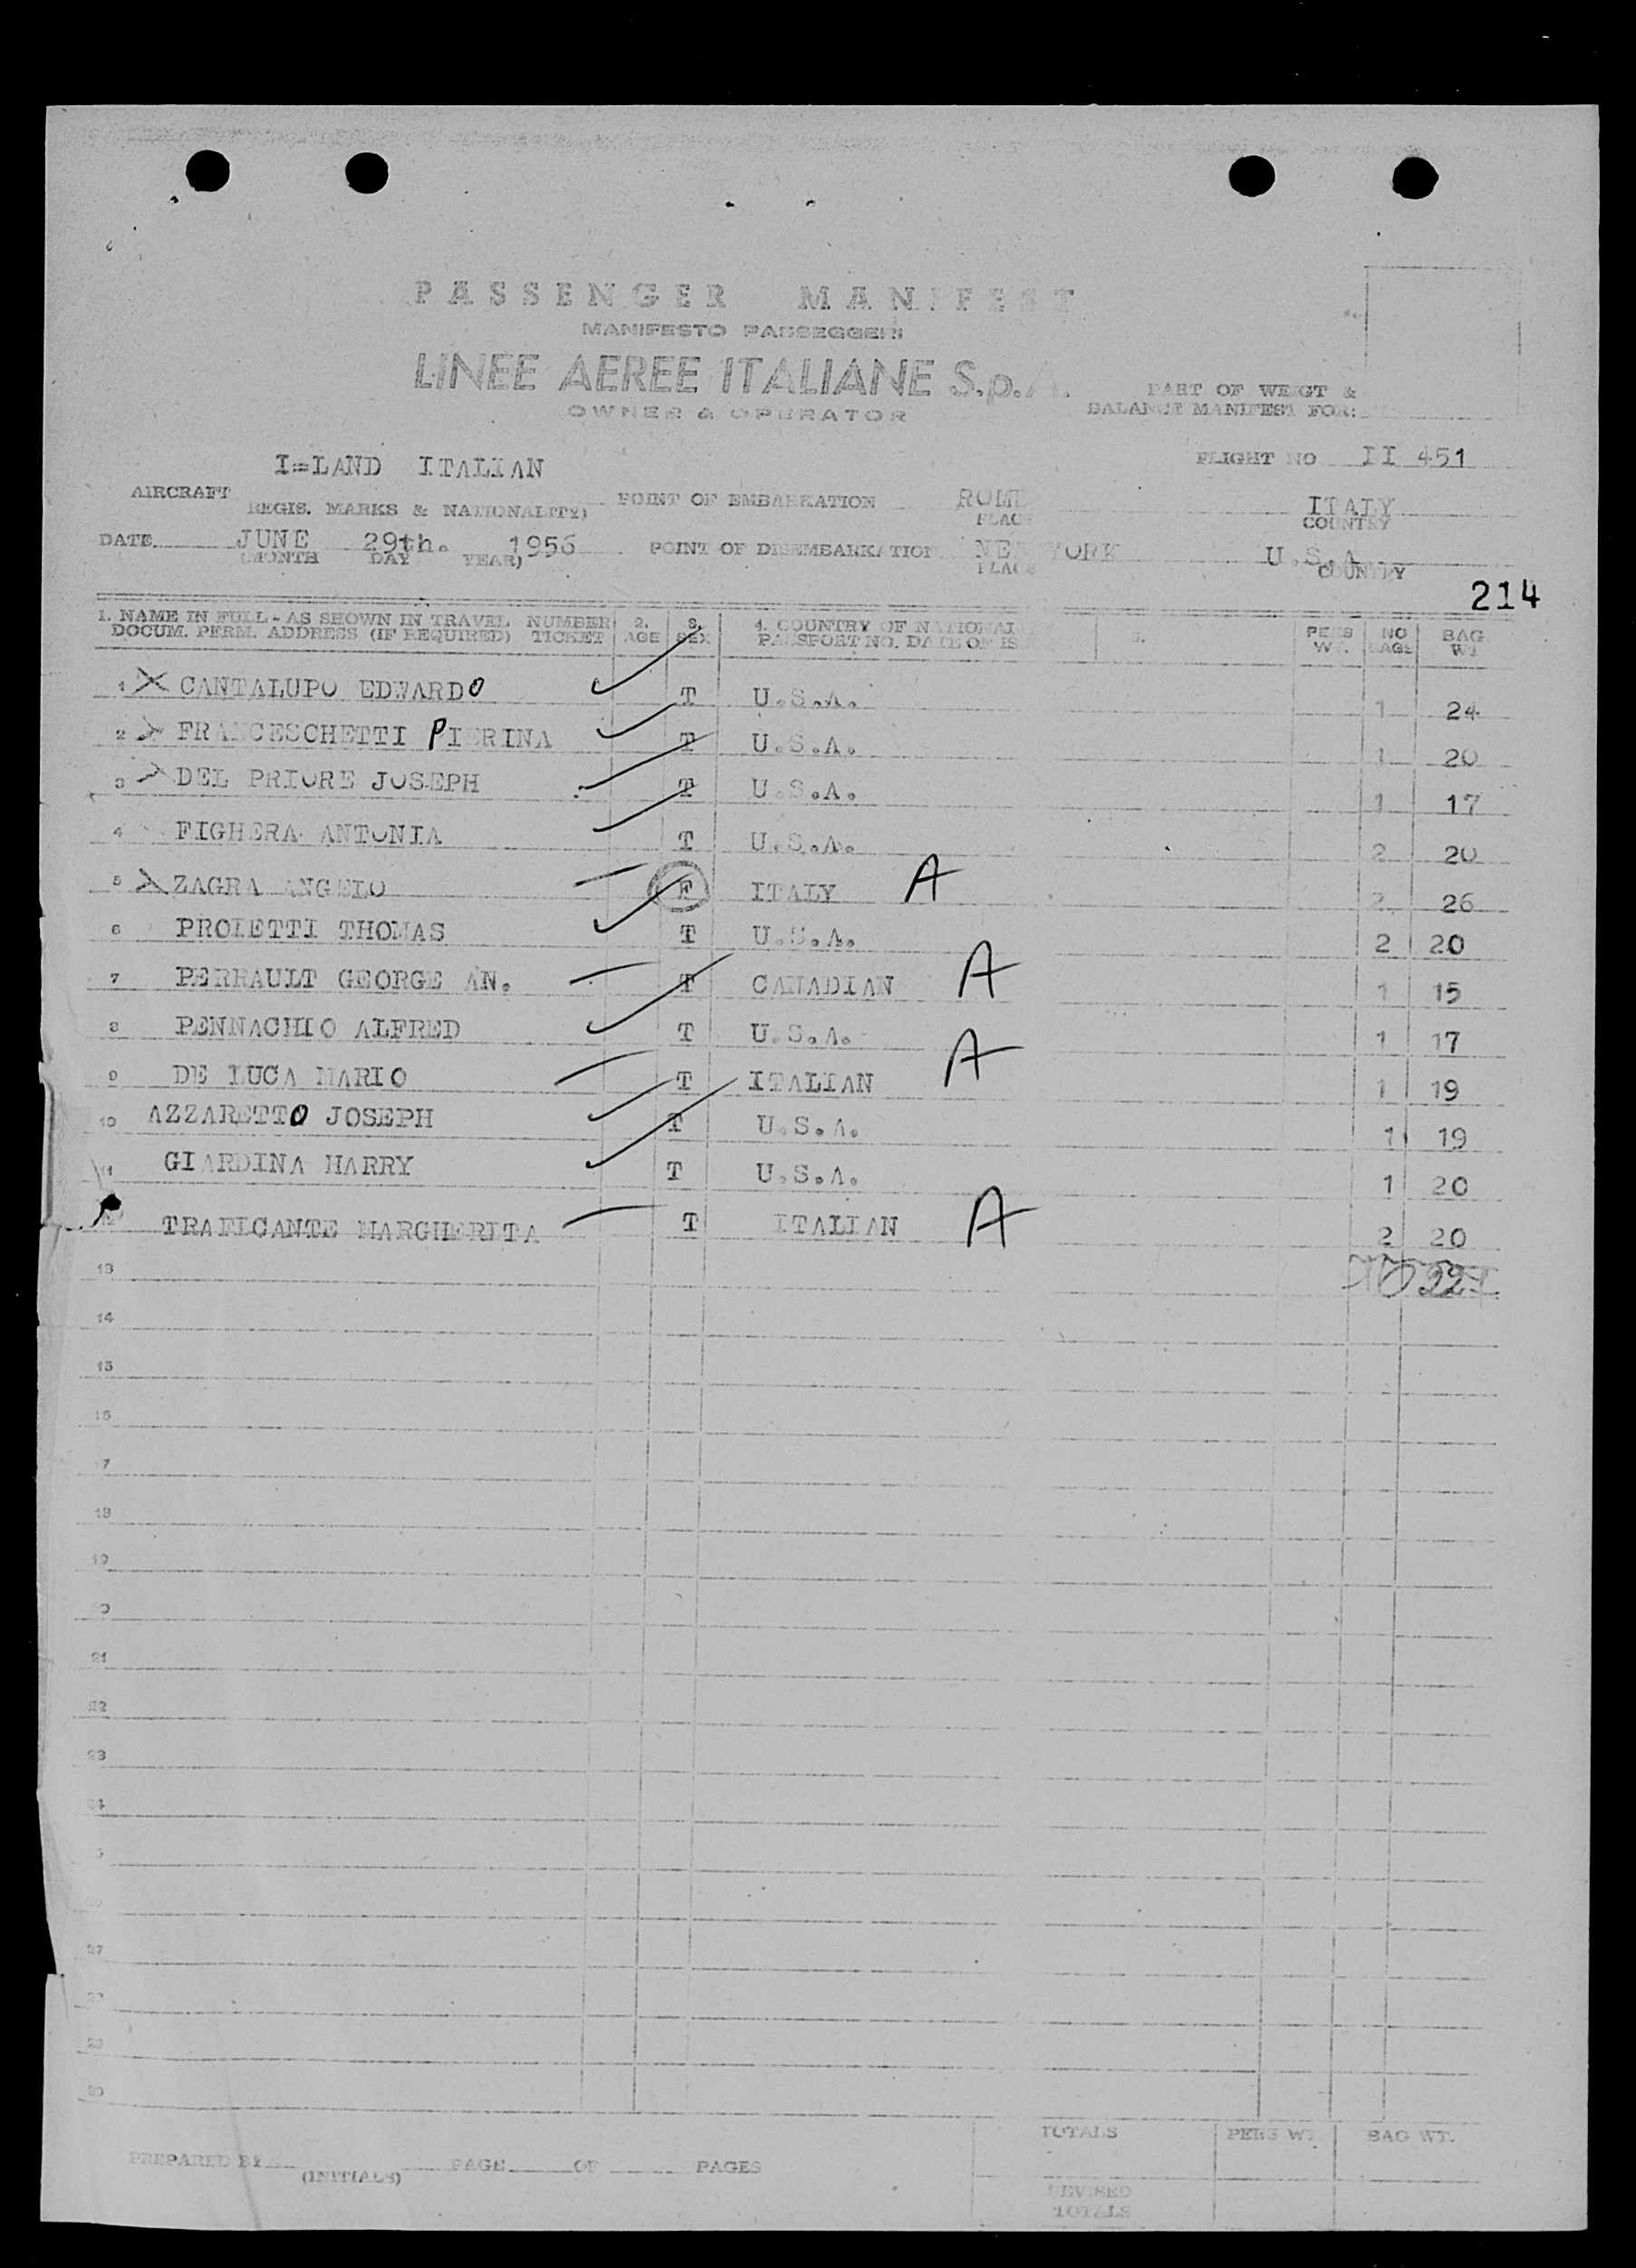 PASSENGER MANIFEST
MANIFESTO PASSEGGERI
LINEE AEREE ITALIANE S.p.A.
OWNER & OPERATOR
PART OF WEIGT &
BALANCE MANIFEST FOR:
I=LAND ITALIAN
FLIGHT NO II 451
AIRCRAFT REGIS. MARKS & NATIONALITY) POINT OF EMBARKATION ROME ITALY
PLACE COUNTRY
DATE JUNE 29th. 1956 POINT OF DISEMBARKATION NEW YORK U.S.A
(MONTH DAY YEAR) PLACE COUNTRY
214
1. NAME IN FULL - AS SHOWN IN TRAVEL NUMBER 2. 3. 4. COUNTRY OF NATIONAL 5. PERS NO BAG
DOCUM. PERM. ADDRESS (IF REQUIRED) TICKET AGE SEX PASSPORT NO. DATE OF IS WT. BAGS WT
1 X CANTALUPO EDWARDO T U.S.A. 1 24
2 FRANCESCHETTI PIERINA T U.S.A. 1 20
3 DEL PRIORE JOSEPH T U.S.A. 1 17
4 FIGHERA ANTONIA T U.S.A. 2 20
5 X ZAGRA ANGELO F ITALY A 2 26
6 PROIETTI THOMAS T U.S.A. 2 20
7 PERRAULT GEORGE AN. T CANADIAN A 1 15
8 PENNACHIO ALFRED T U.S.A. 1 17
9 DE LUCA MARIO T ITALIAN A 1 19
10 AZZARETTO JOSEPH T U.S.A. 1 19
11 GIARDINA HARRY T U.S.A. 1 20
TRAFICANTE MARGHERITA T ITALIAN A 2 20
13
14
15
16
7
18
19
20
21
22
23
24
27
29
30
TOTALS PERS WT BAG WT.
PREPARED BY (INITIALS) PAGE OF PAGES
REVISED
TOTALS